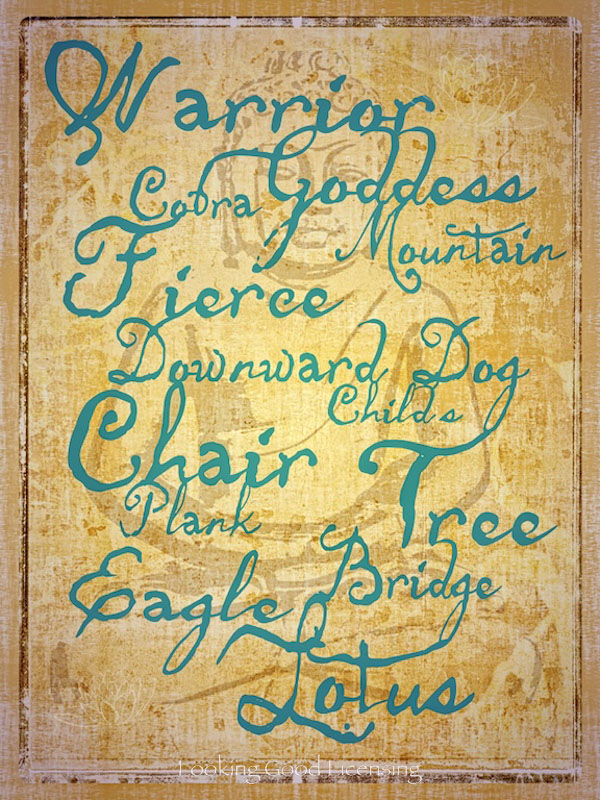 Warrior
Cobra Goddess
Fierce Mountain
Downward Dog
Childs
Chair Tree
Plank
Eagle Bridge
Lotus
Looking Good Licensing